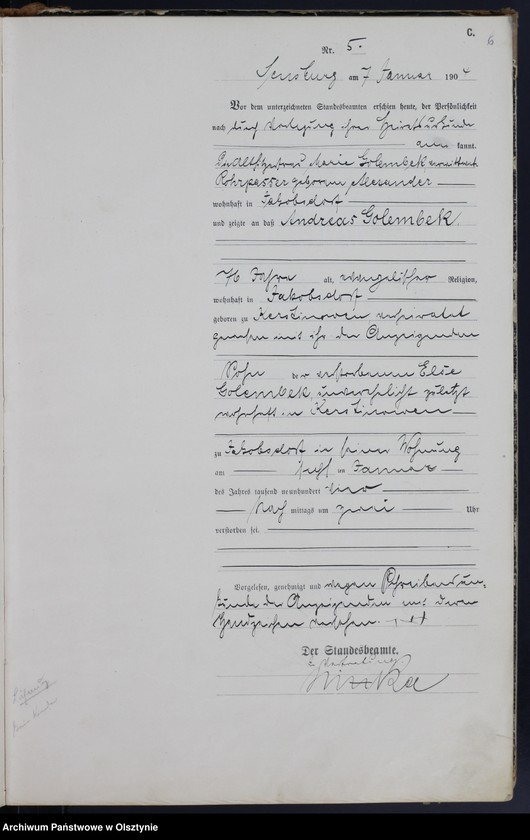 C.
6
Nr. 5.
Sensburg am 7 Januar 1904
Vor dem unterzeichneten Standesbeamten erschien heute, der Persönlichkeit
nach durch Vorlegung ihrer Heiratsurkunde
an kannt,
Marie Golembek, verwittwete
Rohrpasser geborene Alexander
wohnhaft in Jakobsdorf
und zeigte an, daß Andreas Golembek,
76 Jahre alt, evangelischer Religion,
wohnhaft in Jakobsdorf
geboren zu Kerstinowen verheiratet
gewesen mit ihr der Anzeigenden
Sohn der verstorbenen Else
Golembek, unverehelicht zuletzt
wohnhaft in Kerstinowen
zu Jakobsdorf in seiner Wohnung
am Januar
des Jahres tausend neunhundert vier
Nach mittags um zwei Uhr
verstorben sei.
Vorgelesen, genehmigt und wegen Schreibensun-
kunde der Anzeigenden mit deren
Handzeichen versehen. +++
Der Standesbeamte.
In Vertretung
Archiwum Państwowe w Olsztynie